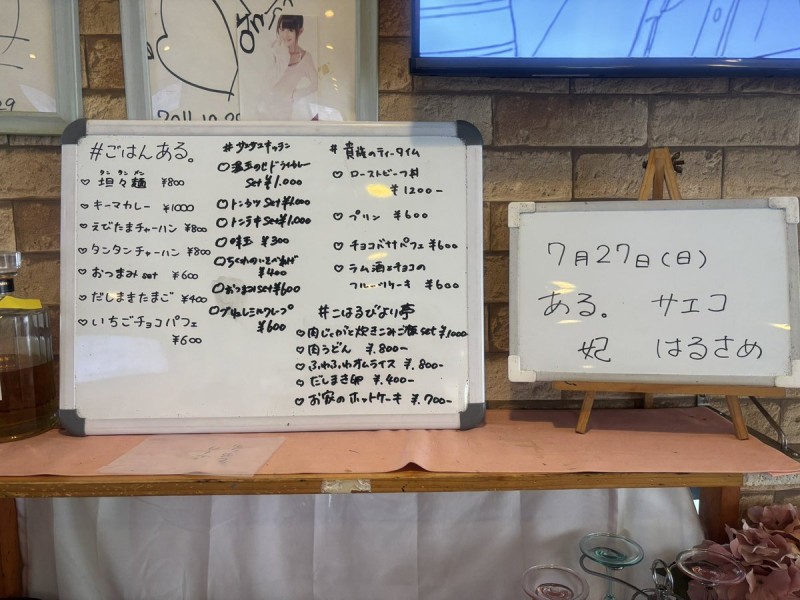 2011.10.29
#ごはんある。
タンタンメン
♡ 坦々麺 ¥800
♡ キーマカレー ¥1000
♡ えびたまチャーハン ¥800
♡ タンタンチャーハン ¥800
♡ おつまみset ¥600
♡ だしまきたまご ¥400
♡ いちごチョコパフェ
¥600
#サエコキッチン
Set ¥1.000
○ トンカツSet ¥1.000
○ トンテキSet ¥1.000
○ 味玉 ¥300
○ ちくわのいそべあげ
¥400
○ おつまみset ¥600
○ ブリュレミルクレープ
¥600
#貴族のティータイム
♡ ローストビーフ丼
¥1200-
♡ プリン ¥600
♡ チョコバナナパフェ ¥600
♡ ラム酒とチョコの
フルーツケーキ ¥600
#こはるびより亭
♡ 肉じゃがと炊きこみご飯set ¥1000-
♡ 肉うどん ¥.800-
♡ ふわふわオムライス ¥.800-
♡ だしまき卵 ¥.400-
♡ お家のホットケーキ ¥.700-
7月27日(日)
ある。 サエコ
妃 はるさめ